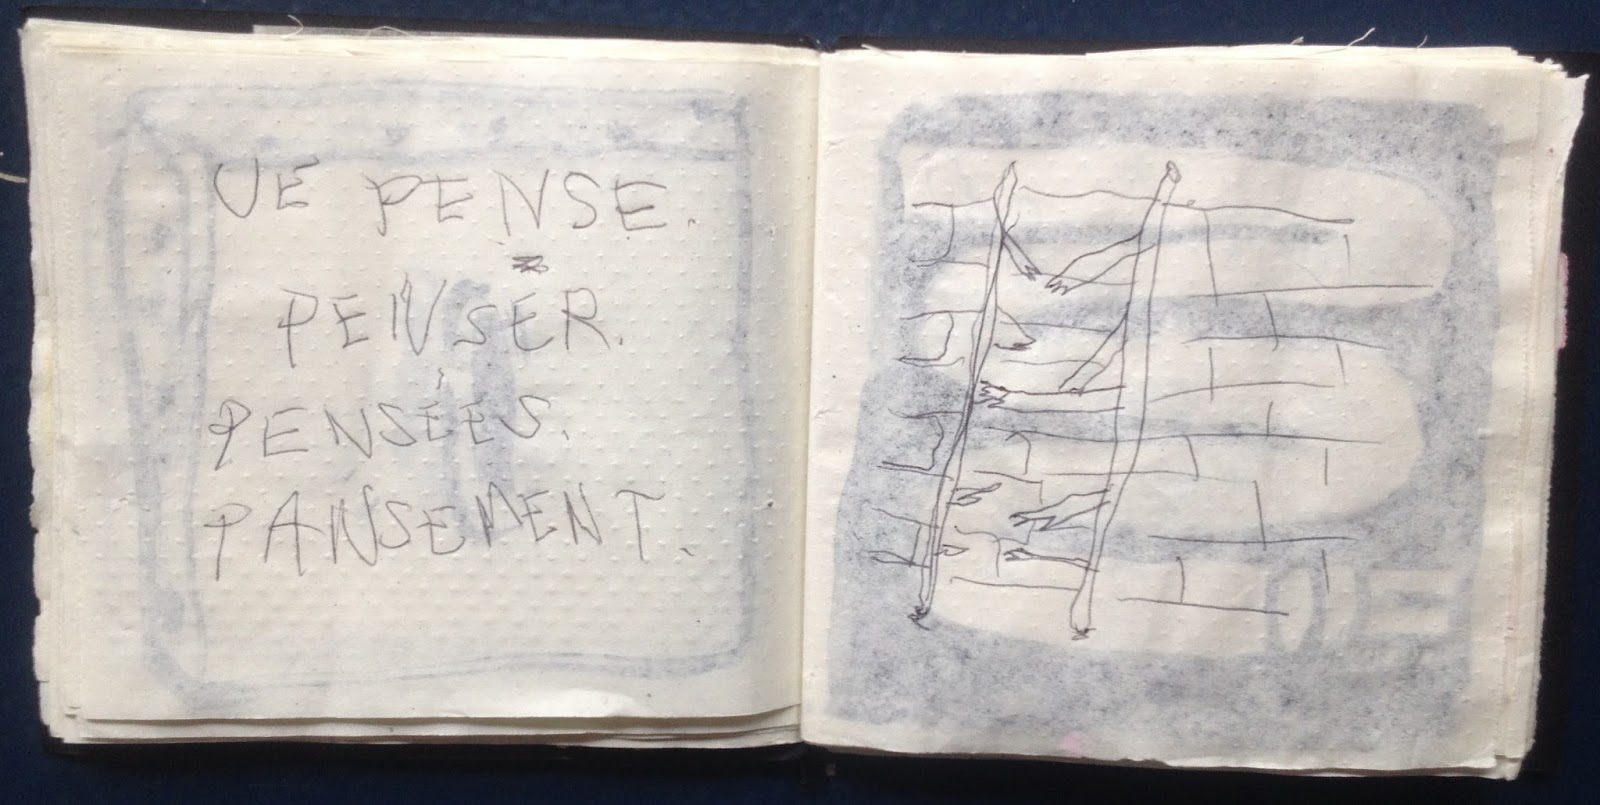 JE PENSE.
PENSER.
PENSÉES.
PANSEMENT.